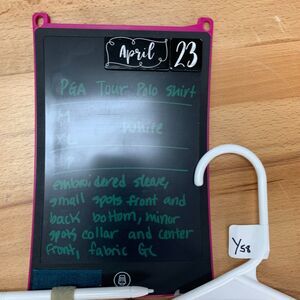 April 23
PGA Tour Polo Shirt
M
White
embroidered sleeve,
small spots front and
back bottom, minor
spots collar and center
front, fabric GC
Y58